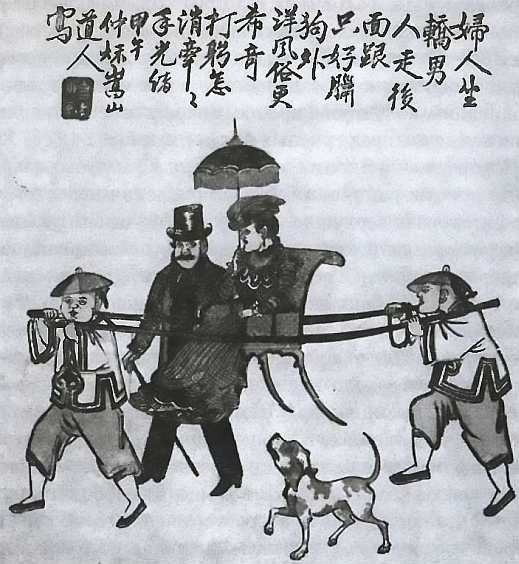 婦人坐
轎男
人走後
面跟
只好獵
狗外
洋風俗更
希奇
打躬怎
消牽々
手光緒
甲午
仲秋嵩山
道人
寫